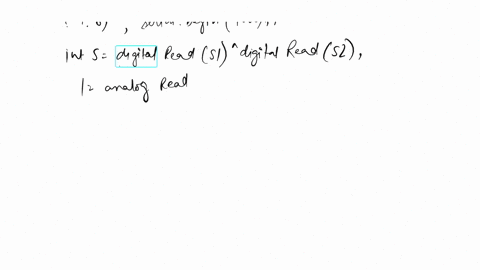 int S= digital Read (S1) ^ digital Read (S2),
l= analog Read